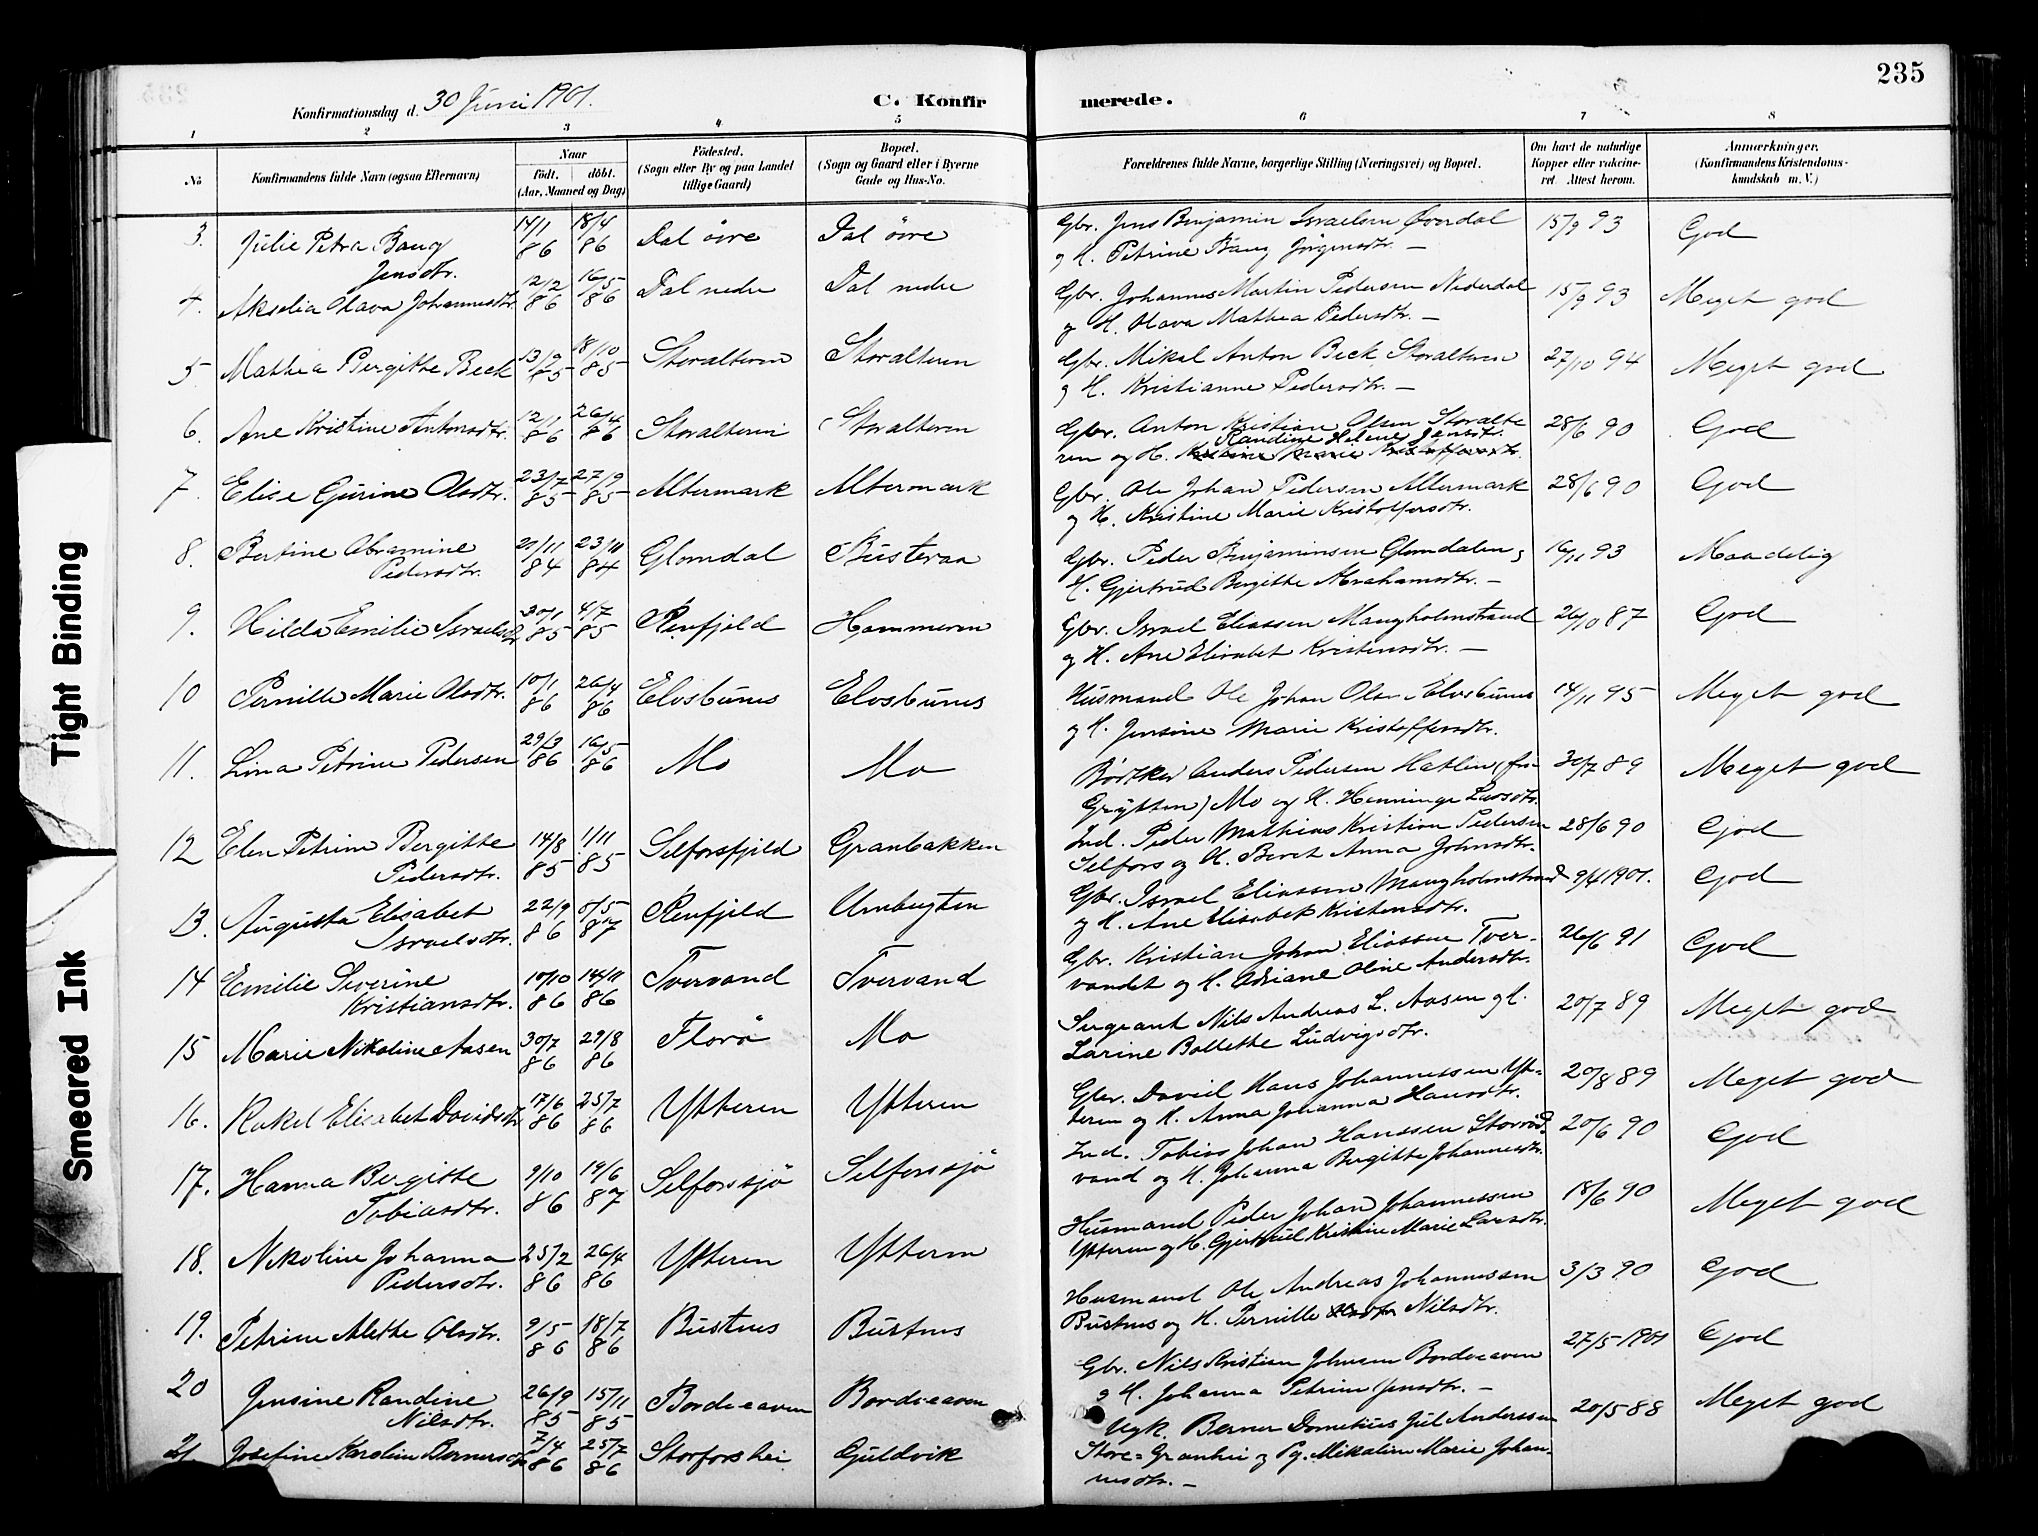 235
Konfirmationsdag d. 30 Juni 1901.
C. Konfirmerede.
1 2 3 4 5 6 7 8
No
Konfirmandens fulde Navn (ogsaa Efternavn)
Naar
født. døbt.
(Aar, Maaned og Dag)
Fødested.
(Sogn eller By og paa Landet
tillige Gaard)
Bopæl.
(Sogn og Gaard eller i Byerne
Gade og Hus-No.
Forældrenes fulde Navne, borgerlige Stilling (Næringsvei) og Bopæl.
Om havt de naturlige
Kopper eller vakcine-
ret. Attest herom.
Anmærkninger.
(Konfirmandens Kristendoms-
kundskab m. V.)
3. Julie Petra Baug Jensdtr. 14/1 86 18/4 86 Dal øvre Dal øvre
Gbr. Jens Benjamin Israelsen Øverdal
og H. Petrine Baug Jørgensdtr. —
15/9 93 God
4. Akselia Olava Johannesdtr. 12/2 86 16/5 86 Dal nedre Dal nedre
Gbr. Johannes Martin Pedersen Nederdal
og H. Olava Mathea Pedersdtr. —
15/9 93 Meget god
5 Mathea Bergitte Beck 13/9 85 18/10 85 Storalteren Storalteren
Gbr. Mikal Anton Beck Storalteren
og H. Kristianne Pedersdtr. —
27/10 94 Meget god
6. Ane Kristine Antonsdtr. 12/1 86 26/4 86 Storalteren Storalteren
Gbr. Anton Kristian Olsen Storalte
Randine Helene Jensdtr.
ren og H. Kristine Marie Kristoffersdtr.
28/6 90 God
7. Elise Gurine Olsdtr. 23/7 85 27/9 85 Altermark Altermark
Gbr. Ole Johan Pedersen Altermark
og H. Kristine Marie Kristoffersdtr.
28/6 90 God
8. Bertine Abramine Pedersdtr. 21/11 84 23/11 84 Glomdal Busteraa
Gbr. Peder Benjaminsen Glomdalen og
H. Gjertrud Bergitte Abrahamsdtr. —
16/11 93 Maadelig
9. Hilda Emilie Israelsdtr 30/1 85 4/7 85 Renfjeld Hammeren
Gbr. Israel Eliassen Maugholmstrand
og H. Ane Elisabet Kristensdtr. —
26/10 87 God
10 Pernille Marie Olsdtr. 10/1 86 26/4 86 Elvsbunes Elvsbunes
Husmand Ole Johan Olsen Elvsbunes
og H. Jensine Marie Kristoffersdtr.
14/11 95 Meget god
11. Lina Petrine Pedersen 29/3 86 16/5 86 Mo Mo
Bødker Anders Pedersen Hatlin (fra
Grytten) Mo og H. Henninge Larsdtr.
30/7 89 Meget god
12 Elen Petrine Bergitte Pedersdtr. 14/8 85 1/11 85 Selforsfjeld Granbakken
Ind. Peder Mathias Kristian Pedersen
Selfors og H. Beret Anna Johnsdtr.
28/6 90 God
13. Augusta Elisabet Israelsdtr. 22/9 86 8/5 87 Renfjeld Umbugten
Gbr. Israel Eliassen Maugholmstrand
og H. Ane Elisabet Kristensdtr.
9/4 1901. God
14 Emilie Severine Kristiansdtr. 10/10 86 14/11 86 Tvervand Tvervand
Gbr. Kristian Johan Eliassen Tver-
vandet og H. Adriane Oline Andersdtr.
26/6 91 God
15 Marie Nikoline Aasen 30/7 86 29/8 86 Florø Mo
Sergeant Nils Andreas L. Aasen og H.
Larine Bollette Ludvigsdtr.
20/7 89 Meget god
16. Rakel Elisabet Davidsdtr 17/6 86 25/7 86 Ytteren Ytteren
Gbr. David Hans Johannessen Yt-
teren og H. Anna Johanna Hansdtr.
20/8 89 Meget god
17. Hanna Bergitte Tobiasdtr. 9/10 86 19/6 87 Selforssjø Selforssjø
Ind. Tobias Johan Hanssen
vand og H. Johanna Bergitte Johannesdtr.
20/6 90 God
18. Nikoline Johanna Pedersdtr. 25/2 86 26/4 86 Ytteren Ytteren
Husmand Peder Johan Johannessen
Ytteren og H. Gjertrud Kristine Marie Larsdtr.
18/6 90 Meget god
19. Petrine Alette Olsdtr. 9/5 86 18/7 86 Bustnes Bustnes
Husmand Ole Andreas Johannessen
Bustnes og H. Pernille Olsdtr Nilsdtr.
3/3 90 God
20 Jensine Randine Nilsdtr. 26/9 85 15/11 85 Bordveaven Bordveaven
Gbr. Nils Kristian Johnsen Bordveaven
og H. Johanna Petrine Jensdtr. —
27/5 1901 God
21 Josefine Karoline Bernersdtr 7/4 86 25/7 86 Storforshei Guldvik
Ugk. Berner Dometius Jul Anderssen
Store-Granhei og Pg. Mikaline Marie Johan-
nesdtr. —
20/5 88 Meget god
Tight Binding
Smeared Ink